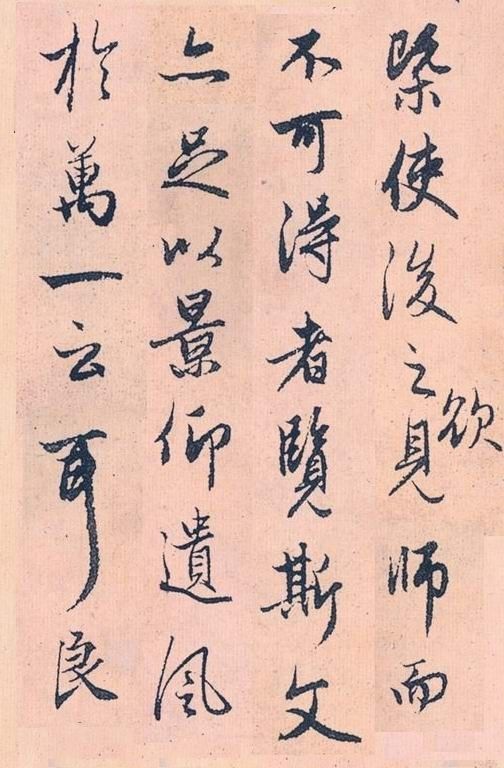 槩使後之欲見師而
不可得者覽斯文
亦足以景仰遺風
於萬一云耳良